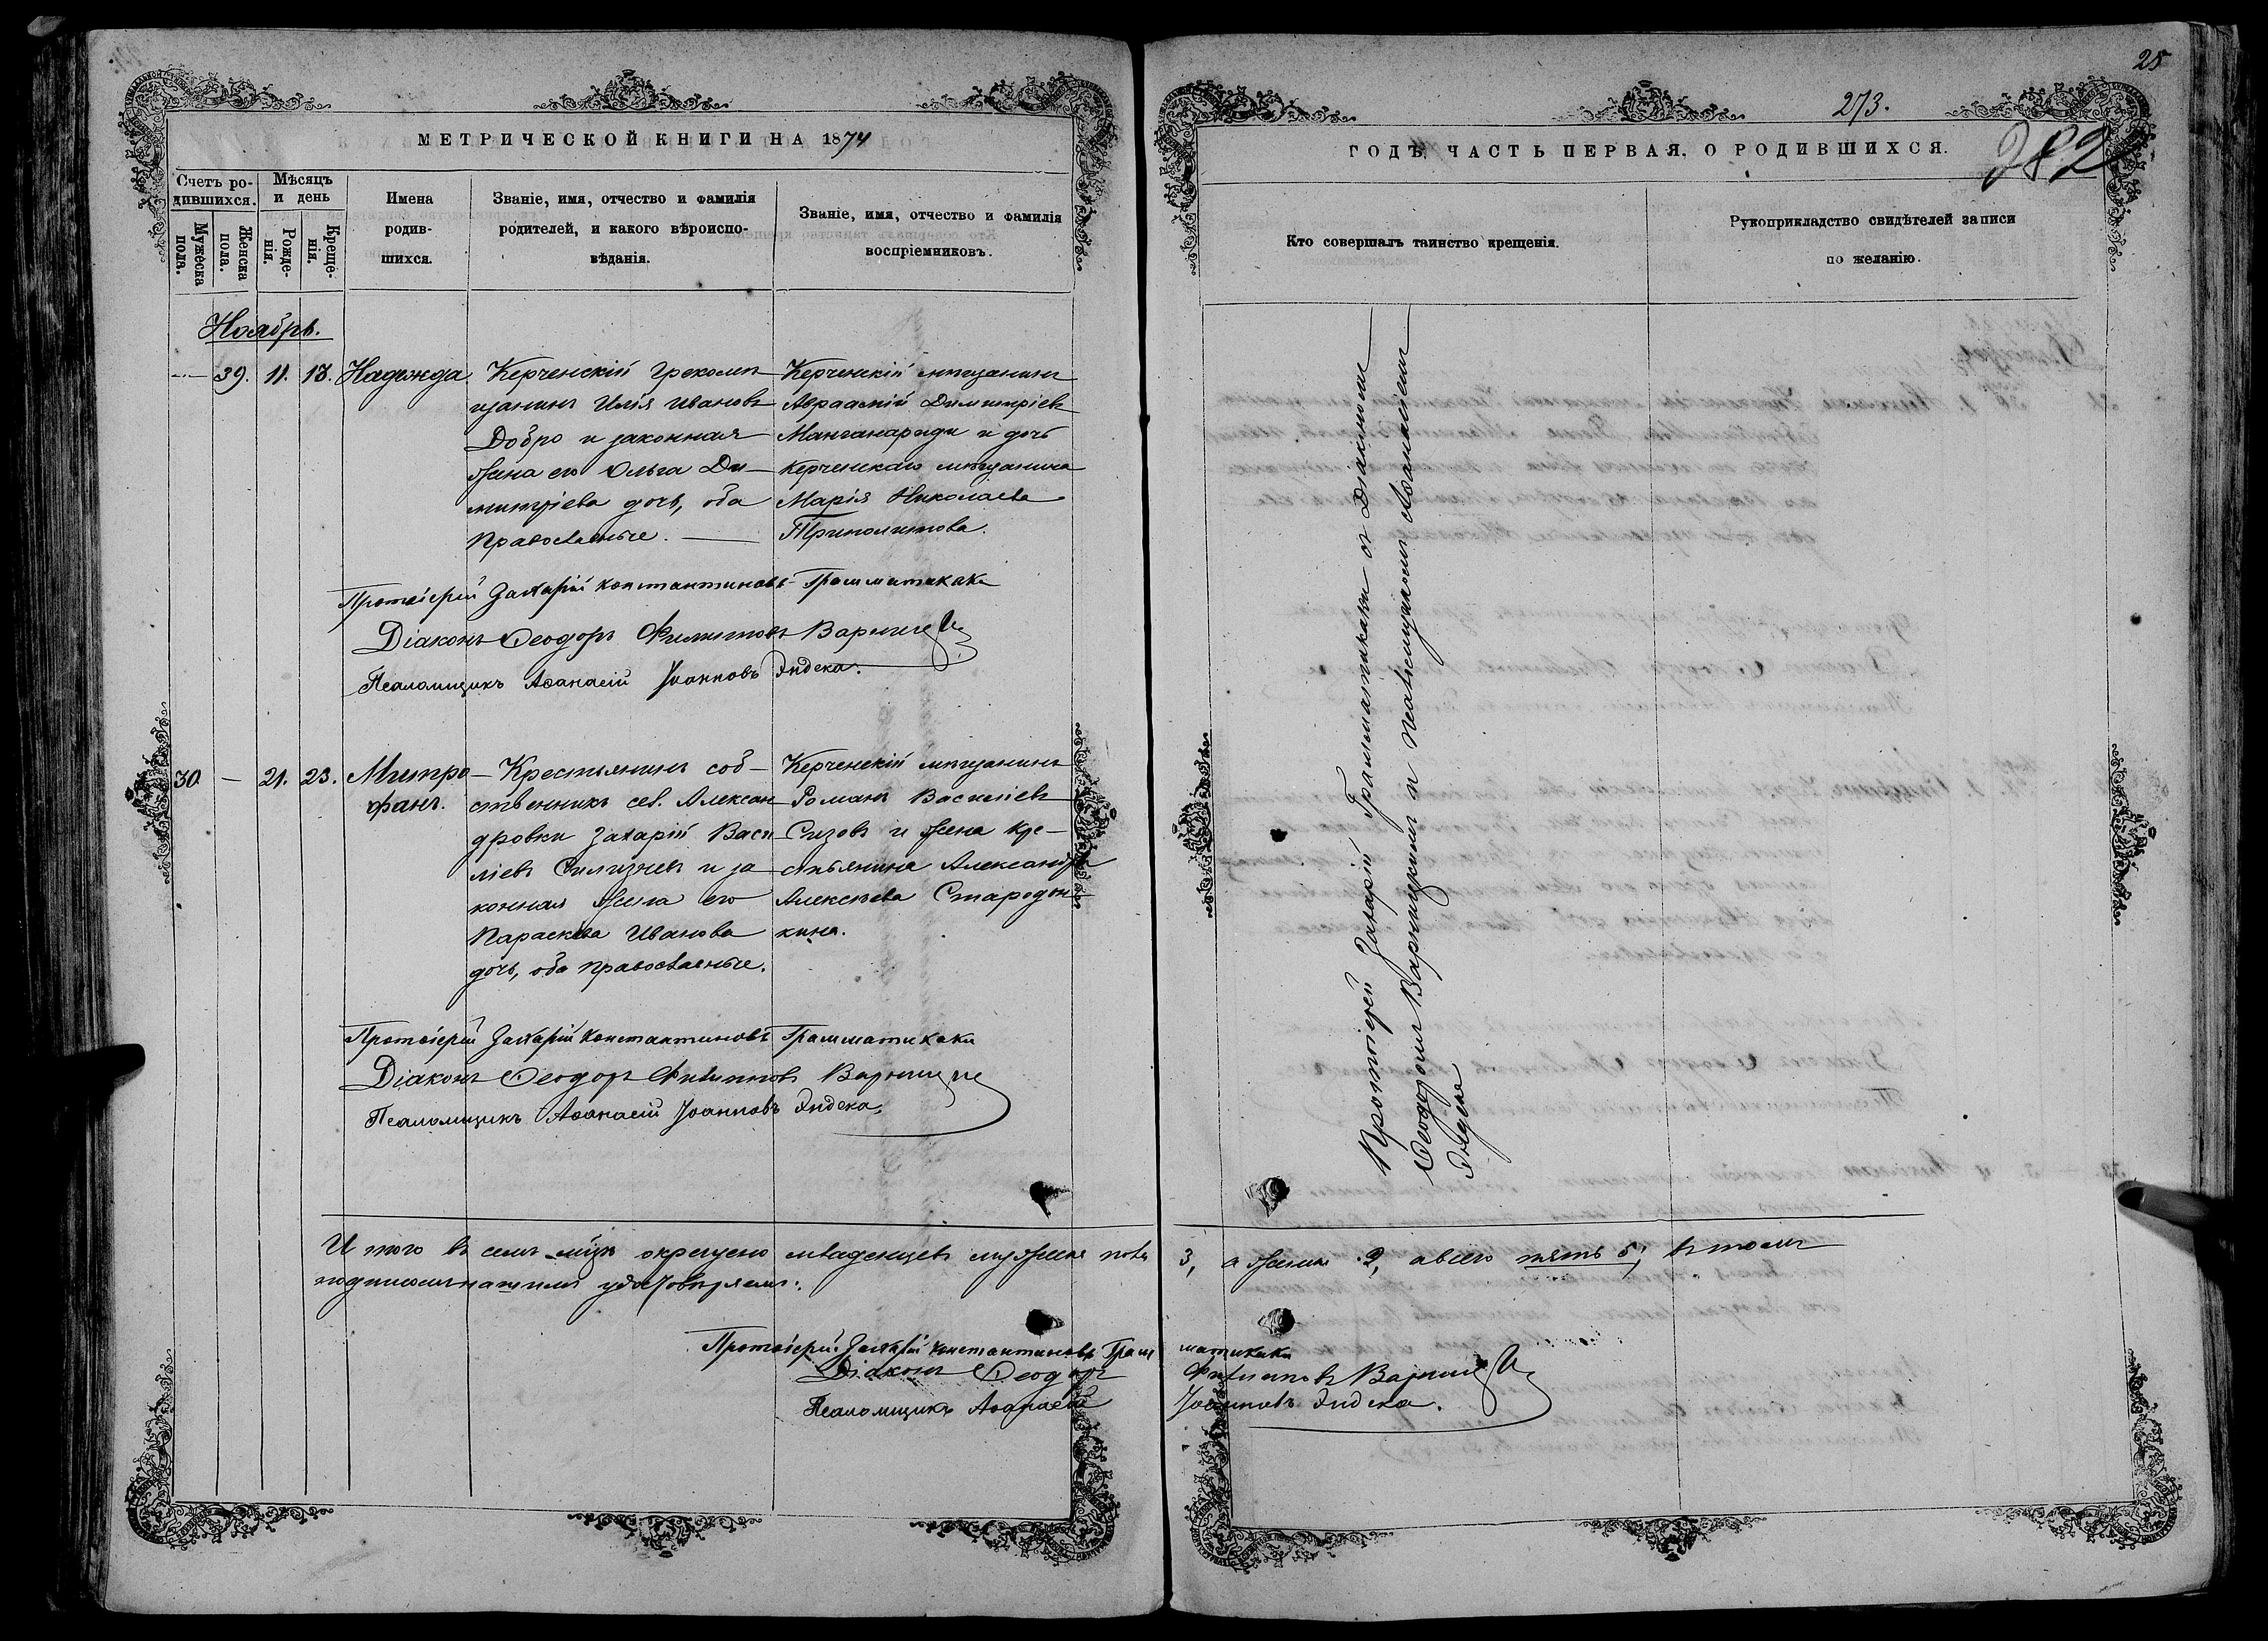 25
273.
282
МЕТРИЧЕСКОЙ КНИГИ НА 1874
ГОДЪ, ЧАСТЬ ПЕРВАЯ, О РОДИВШИХСЯ.
Счетъ ро-
дившихся.
Мужеска
пола.
Женска
пола.
Мѣсяцъ
и день
Рожде-
нія.
Креще-
нія.
Имена
родив-
шихся.
Званіе, имя, отчество и фамилія
родителей, и какого вѣроиспо-
вѣданія.
Званіе, имя, отчество и фамилія
воспріемниковъ.
Кто совершалъ таинство крещенія.
Рукоприкладство свидѣтелей записи
по желанію.
Ноябрь.
— 39. 11. 13. Надежда.
Керченскій грекомѣ
щанинъ Илія Ивановъ
Добро и законная
жена его Ольга Ди-
митріева дочь, оба
православные. —
Керченскій мѣщанинъ
Авраамій Димитріевъ
Манганариди и дочь
керченскаго мѣщанина
Марія Николаева
Триполитова.
Протоіерей Захарій Константиновъ Грамматикаки
Діаконъ Ѳеодоръ Филиповъ Варниц
Псаломщикъ Аѳанасій Іоанновъ Индека.
30 — 21. 23. Митро-
фанъ.
Крестьянинъ соб-
ственникъ сел. Алексан
дровки Захарій Васи
ліевъ Силизневъ и за
конная жена его
Параскева Иванова
дочь, оба православные.
Керченскій мѣщанинъ
Романъ Василіевъ
Сизовъ и жена кре-
стьянина Александра
Алексѣева Стародуб-
кина.
Протоіерей Захарій Константиновъ Грамматикаки
Діаконъ Ѳеодоръ Филиповъ Варниц
Псаломщикъ Аѳанасій Іоанновъ Индека.
Протоіерей Захарій Грамматикаки съ Діакономъ
Ѳеодоромъ Варницкимъ и псаломщикомъ Аѳанасіемъ
Индека
И того въ семъ мѣсц окрещено младенцевъ мужеска пола 3, а женск. 2, а всего пять 5; въ томъ
подписомъ нашимъ удостовѣряемъ:
Протоіерей Захарій Константиновъ Грамматикаки
Діаконъ Ѳеодоръ Филиповъ Варниц
Псаломщикъ Аѳанасій Іоанновъ Индека.